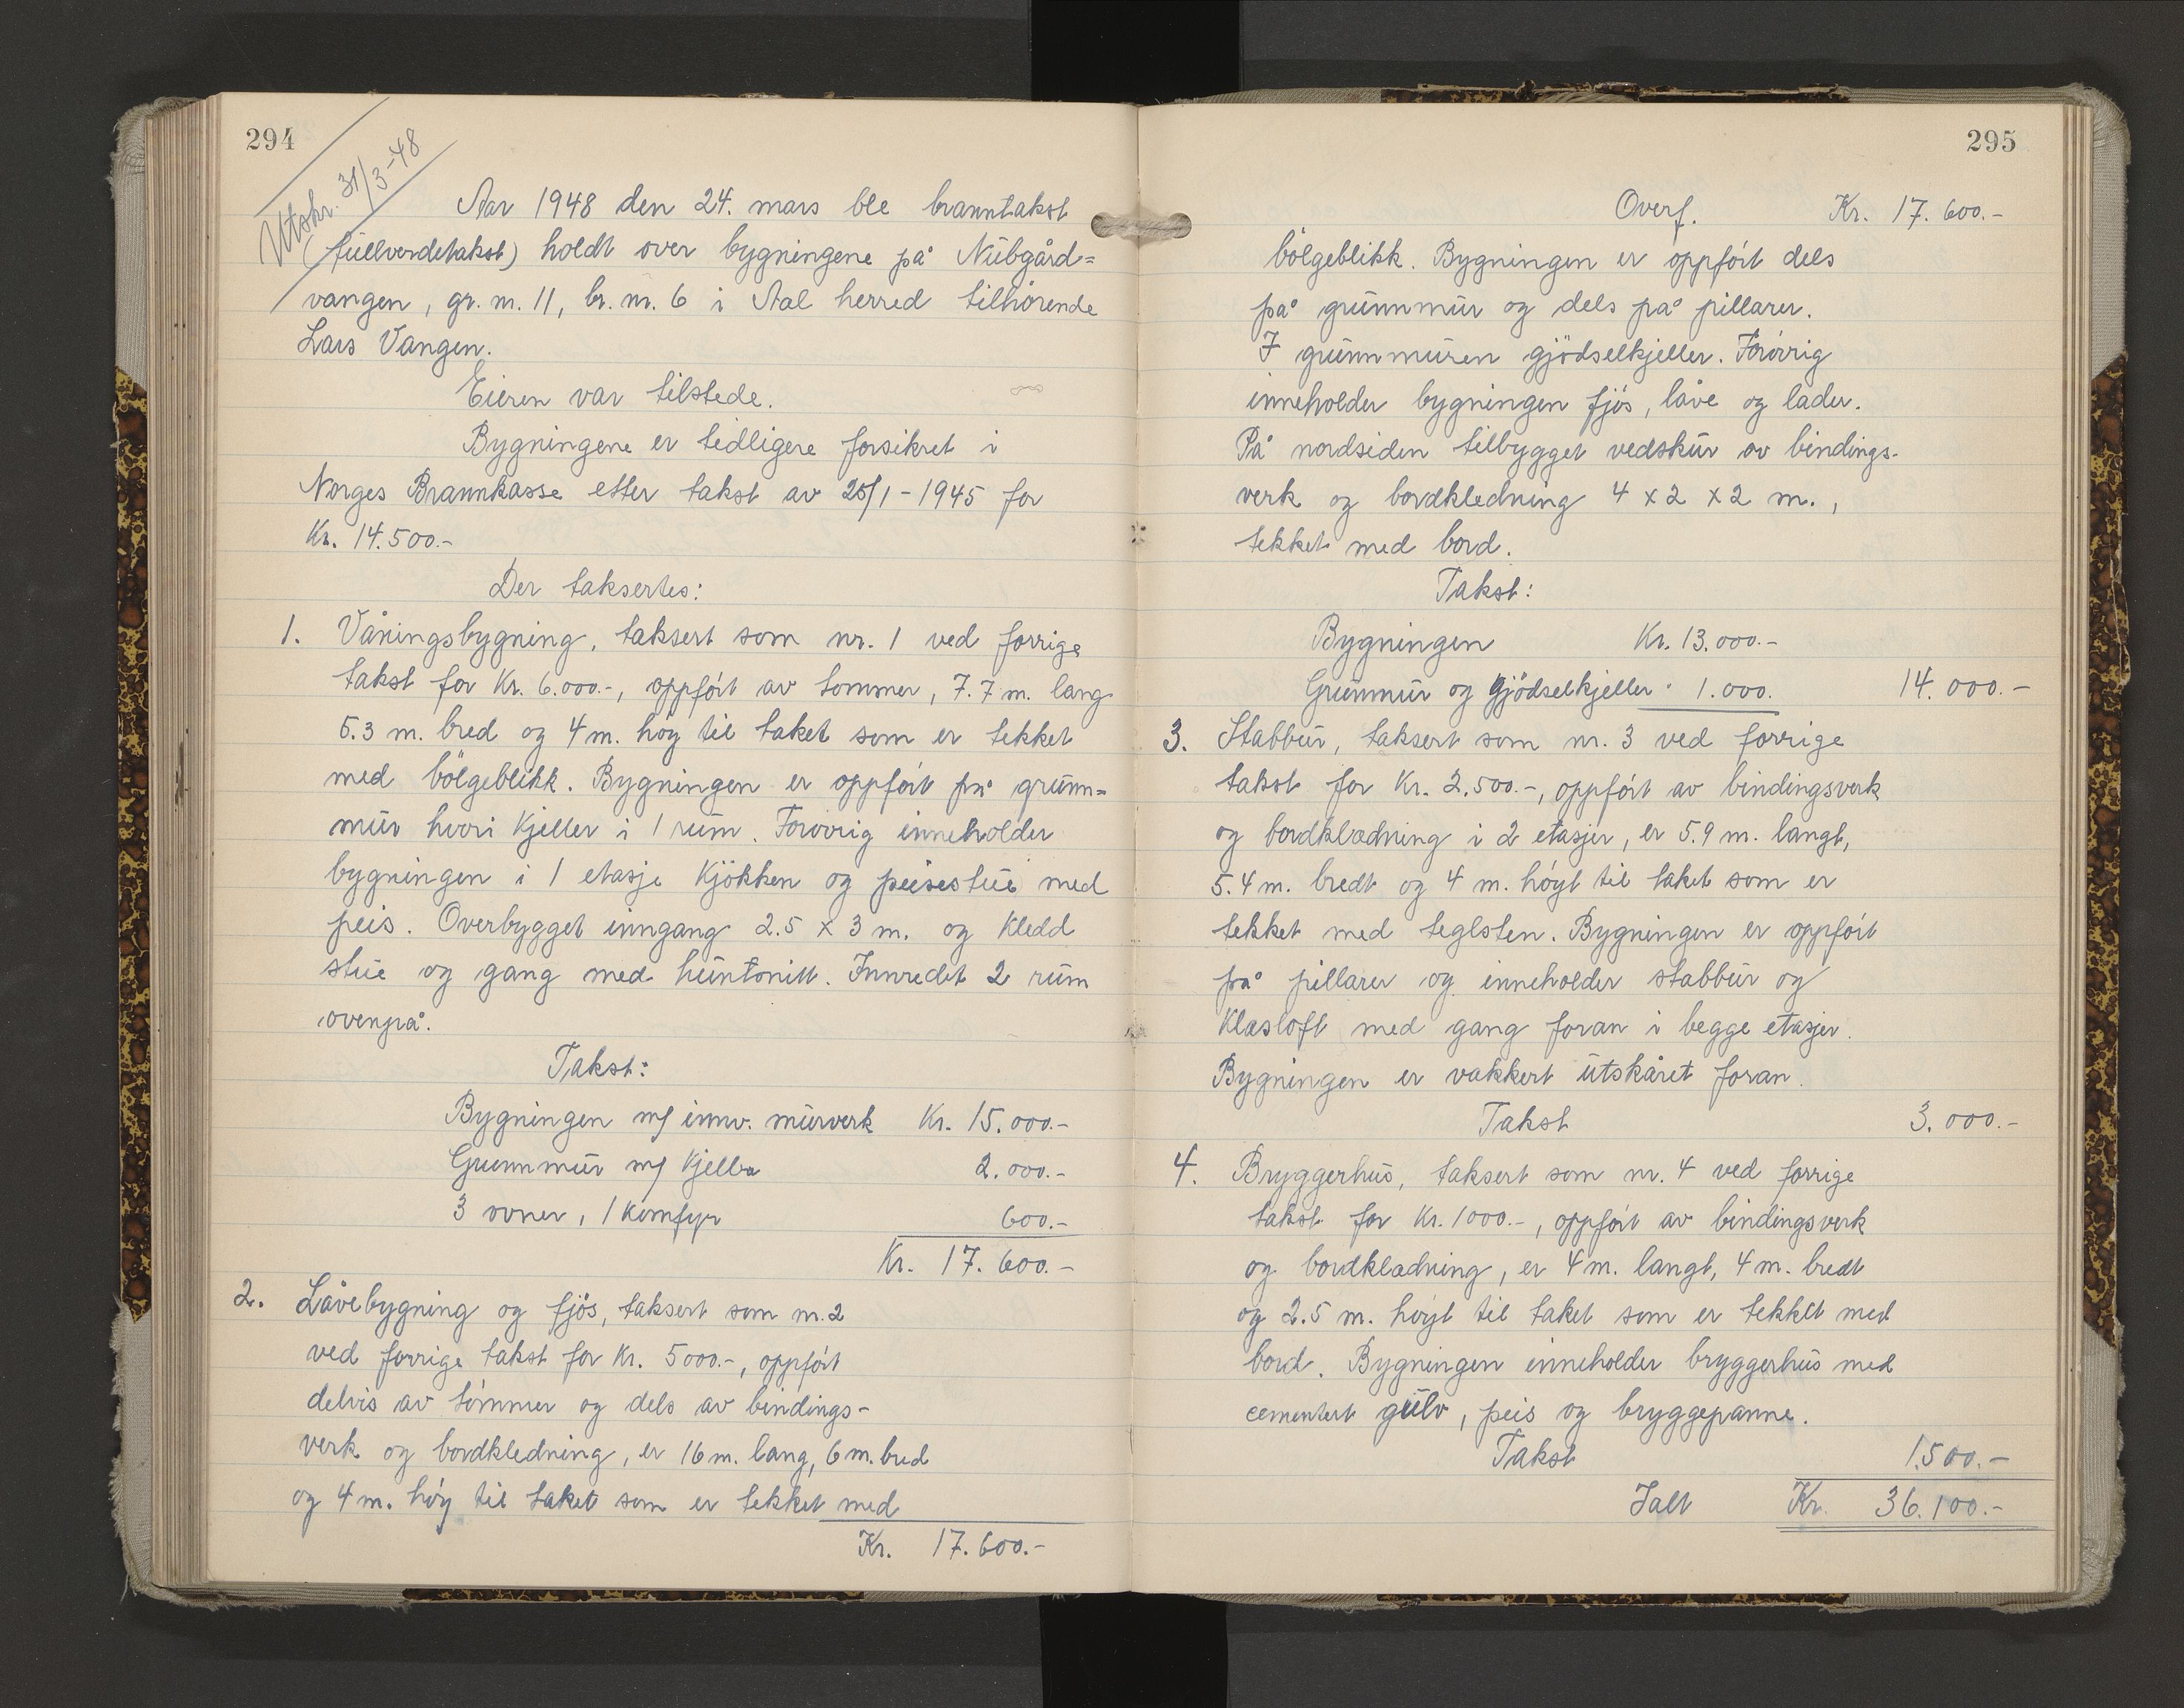 294
Utskr. 31/3-48
Aar 1948 den 24. mars ble branntakst
(fullverdetakst) holdt over bygningene på Nubgård=
vangen, gr. nr. 11, br. nr. 6 i Aal herred tilhörende
Lars Vangen.
Eieren var tilstede.
Bygningene er tidligere forsikret i
Norges Brannkasse etter takst av 25/1-1945 for
Kr. 14.500.-
Der taksertes:
1. Våningsbygning, taksert som nr. 1 ved forrige
takst for Kr. 6.000.-, oppfört av tömmer, 7.7 m. lang
5.3 m. bred og 4 m. höy til taket som er tekket
med bölgeblikk. Bygningen er oppfört på grunn=
mur hvori kjeller i 1 rum. Forövrig inneholder
bygningen i 1 etasje kjökken og peisestue med
peis. Overbygget inngang 2.5 x 3 m. og kledd
stue og gang med huntonitt. Innredet 2 rum
ovenpå.
Takst:
Bygningen m/ innv. murverk Kr. 15.000.-
Grunnmur m/ kjeller 2.000.-
3 ovner, 1 komfyr 600.-
Kr. 17.600.-
2. Låvebygning og fjös, taksert som nr. 2
ved forrige takst for Kr. 5000.-, oppfört
delvis av tömmer og dels av bindings-
verk og bordkledning, er 16 m. lang, 6 m. bred
og 4 m. höy til taket som er tekket med
Kr. 17.600.-
295
Overf. Kr. 17.600.-
bölgeblikk. Bygningen er oppfört dels
på grunnmur og dels på pillarer.
I grunnmuren gjödselkjeller. Forövrig
inneholder bygningen fjös, låve og lader.
På nordsiden tilbygget vedskur av bindings-
verk og bordkledning 4 x 2 x 2 m.,
tekket med bord.
Takst:
Bygningen Kr. 13.000.-
Grunnmur og gjödselkjeller " 1.000. 14.000.-
3. Stabbur, taksert som nr. 3 ved forrige
takst for Kr. 2.500.-, oppfört av bindingsverk
og bordklædning i 2 etasjer, er 5.9 m. langt,
5.4 m. bredt og 4 m. höyt til taket som er
tekket med teglsten. Bygningen er oppfört
på pillarer og inneholder stabbur og
klesloft med gang foran i begge etasjer.
Bygningen er vakkert utskåret foran.
Takst 3.000.-
4. Bryggerhus, taksert som nr. 4 ved forrige
takst for Kr. 1000.-, oppfört av bindingsverk
og bordklædning, er 4 m. langt, 4 m. bredt
og 2.5 m. höyt til taket som er tekket med
bord. Bygningen inneholder bryggerhus med
cementert gulv, peis og bryggepanne.
Takst 1.500.-
Ialt Kr. 36.100.-